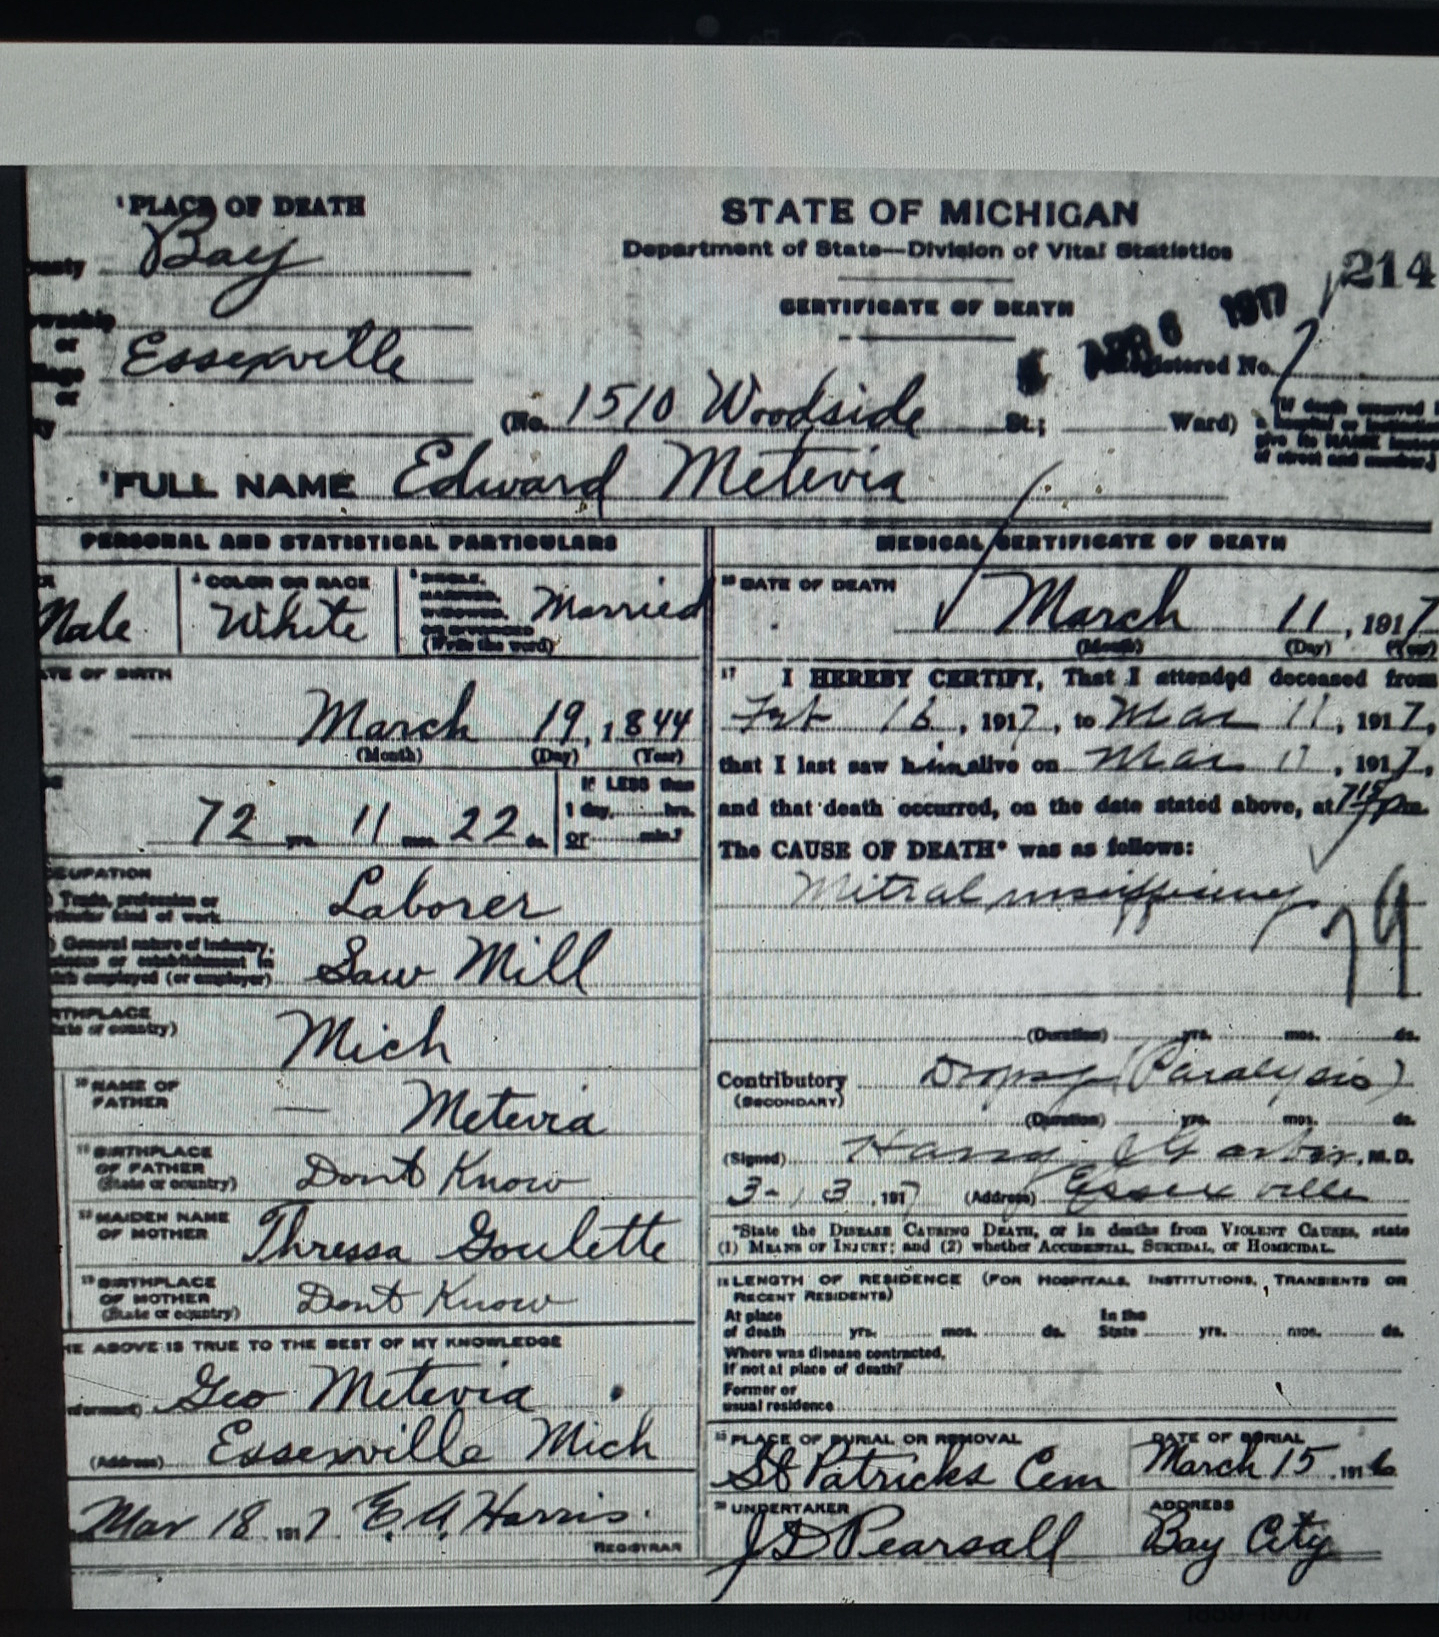 ¹PLACE OF DEATH
STATE OF MICHIGAN
Department of State—Division of Vital Statistics
214
Bay
CERTIFICATE OF DEATH
APR 6 1917
Essexville
Registered No.
(No. 1510 Woodside St.; Ward)
If death occurred
give its NAME instead
of street and number.
²FULL NAME Edward Metevia
PERSONAL AND STATISTICAL PARTICULARS
Male
⁴COLOR OR RACE
White
⁵SINGLE,
MARRIED,
(Write the word)
Married
DATE OF BIRTH
March 19, 1844
(Month) (Day) (Year)
72 yrs. 11 mos. 22 ds.
If LESS than
1 day, hrs.
or min.?
OCCUPATION
Trade, profession or
kind of work
Laborer
General nature of industry,
(or employer)
Saw Mill
BIRTHPLACE
(State or country)
Mich
¹⁰NAME OF
FATHER
— Metevia
¹¹BIRTHPLACE
OF FATHER
(State or country)
Dont Know
¹²MAIDEN NAME
OF MOTHER
Thressa Goulette
¹³BIRTHPLACE
OF MOTHER
(State or country)
Dont Know
THE ABOVE IS TRUE TO THE BEST OF MY KNOWLEDGE
(Informant) Geo Metevia
(Address) Essexville Mich
Mar 18, 1917 E. A. Harris.
REGISTRAR
MEDICAL CERTIFICATE OF DEATH
¹⁶DATE OF DEATH
March 11, 1917
(Month) (Day) (Year)
¹⁷ I HEREBY CERTIFY, That I attended deceased from
Feb 16, 1917, to Mar 11, 1917,
that I last saw him alive on Mar 11, 1917,
and that death occurred, on the date stated above, at 715 pm.
The CAUSE OF DEATH* was as follows:
Mitral insufficiency
79
(Duration) yrs. mos. ds.
Contributory Dropsy (Paralysis)
(SECONDARY)
(Duration) yrs. mos. ds.
(Signed) Harry M.D.
3-13, 1917 (Address) Essexville
*State the DISEASE CAUSING DEATH, or in deaths from VIOLENT CAUSES, state
(1) MEANS OF INJURY; and (2) whether ACCIDENTAL, SUICIDAL, or HOMICIDAL.
¹⁸LENGTH OF RESIDENCE (FOR HOSPITALS, INSTITUTIONS, TRANSIENTS OR
RECENT RESIDENTS)
At place
of death yrs. mos. ds.
In the
State yrs. mos. ds.
Where was disease contracted,
If not at place of death?
Former or
usual residence
¹⁹PLACE OF BURIAL OR REMOVAL
St Patricks Cem
DATE OF BURIAL
March 15, 1916
²⁰UNDERTAKER
J D Pearsall
ADDRESS
Bay City